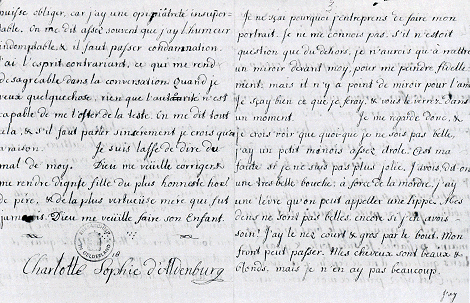 puisse obliger, car j'ay une opiniâtreté insupor-
table. On me dit assez souvent que j'ay l'humeur
indomptable, & il faut passer condamnation.
J'ai l'esprit contrariant, ce qui me rend
desagréable dans la conversation. Quand je
veux quelquechose, rien que l'autorité n'est
capable de me l'oster de la teste. On me dit tout
cela, & s'il faut parler sincerement je crois qu'on a
raison. Je suis lasse de dire du
mal de moy. Dieu me veüille corriger &
me rendre digne fille du plus honneste hoe
de père, & de la plus vertueuse mere qui fut
jamais. Dieu me veüille faire son Enfant.
Charlotte Sophie d'Aldenburg
Je ne sçai pourquoi j'entreprens de faire mon
portrait. Je ne me connois pas. S'il n'estoit
question que du dehors, je n'aurois qu'à mettre
un miroir devant moy, pour me peindre fidele-
ment, mais il n'y a point de miroir pour l'ame
Je sçay bien ce que je feray, & vous le verrés dans
un moment. Je me regarde donc, &
je crois voir que quoi-que je ne sois pas belle,
j'ay un petit minois assez drole. C'est ma
faute si je ne suis pas plus jolie. J'avois, dit on
une tres belle bouche; à force de la mordre, j'ay
une lèvre qu'on peut appeller une lippe. Mes
dens ne sont pas belles, encore si j'en avois
soin! J'ay le nez court & gros par le bout. Mon
front peut passer. Mes cheveux sont beaux &
blonds, mais je n'en ay pas beaucoup.
j'ay